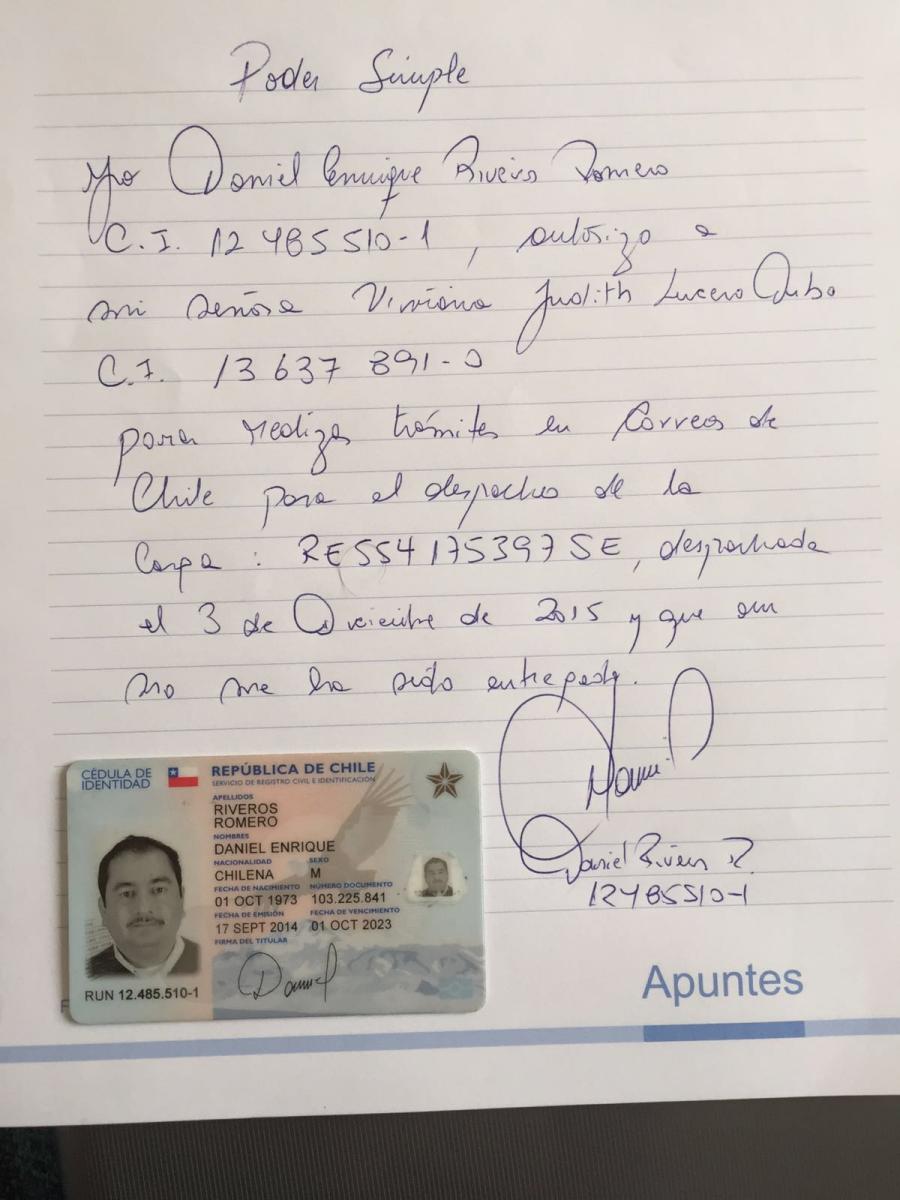 Poder Simple
Yo Daniel Enrique Riveros Romero
C.I. 12 485 510-1, autorizo a
mi señora Viviana Judith Lucero
C.I. 13 637 891-0
para realizar trámites en Correos de
Chile para el despacho de la
Carpa: RE554175397SE, despachada
el 3 de Diciembre de 2015 y que aun
no me ha sido entregada.
Daniel Riveros R.
12485510-1
CÉDULA DE
IDENTIDAD
REPÚBLICA DE CHILE
SERVICIO DE REGISTRO CIVIL E IDENTIFICACIÓN
APELLIDOS
RIVEROS
ROMERO
NOMBRES
DANIEL ENRIQUE
NACIONALIDAD SEXO
CHILENA M
FECHA DE NACIMIENTO NÚMERO DOCUMENTO
01 OCT 1973 103.225.841
FECHA DE EMISIÓN FECHA DE VENCIMIENTO
17 SEPT 2014 01 OCT 2023
FIRMA DEL TITULAR
Daniel
RUN 12.485.510-1
Apuntes